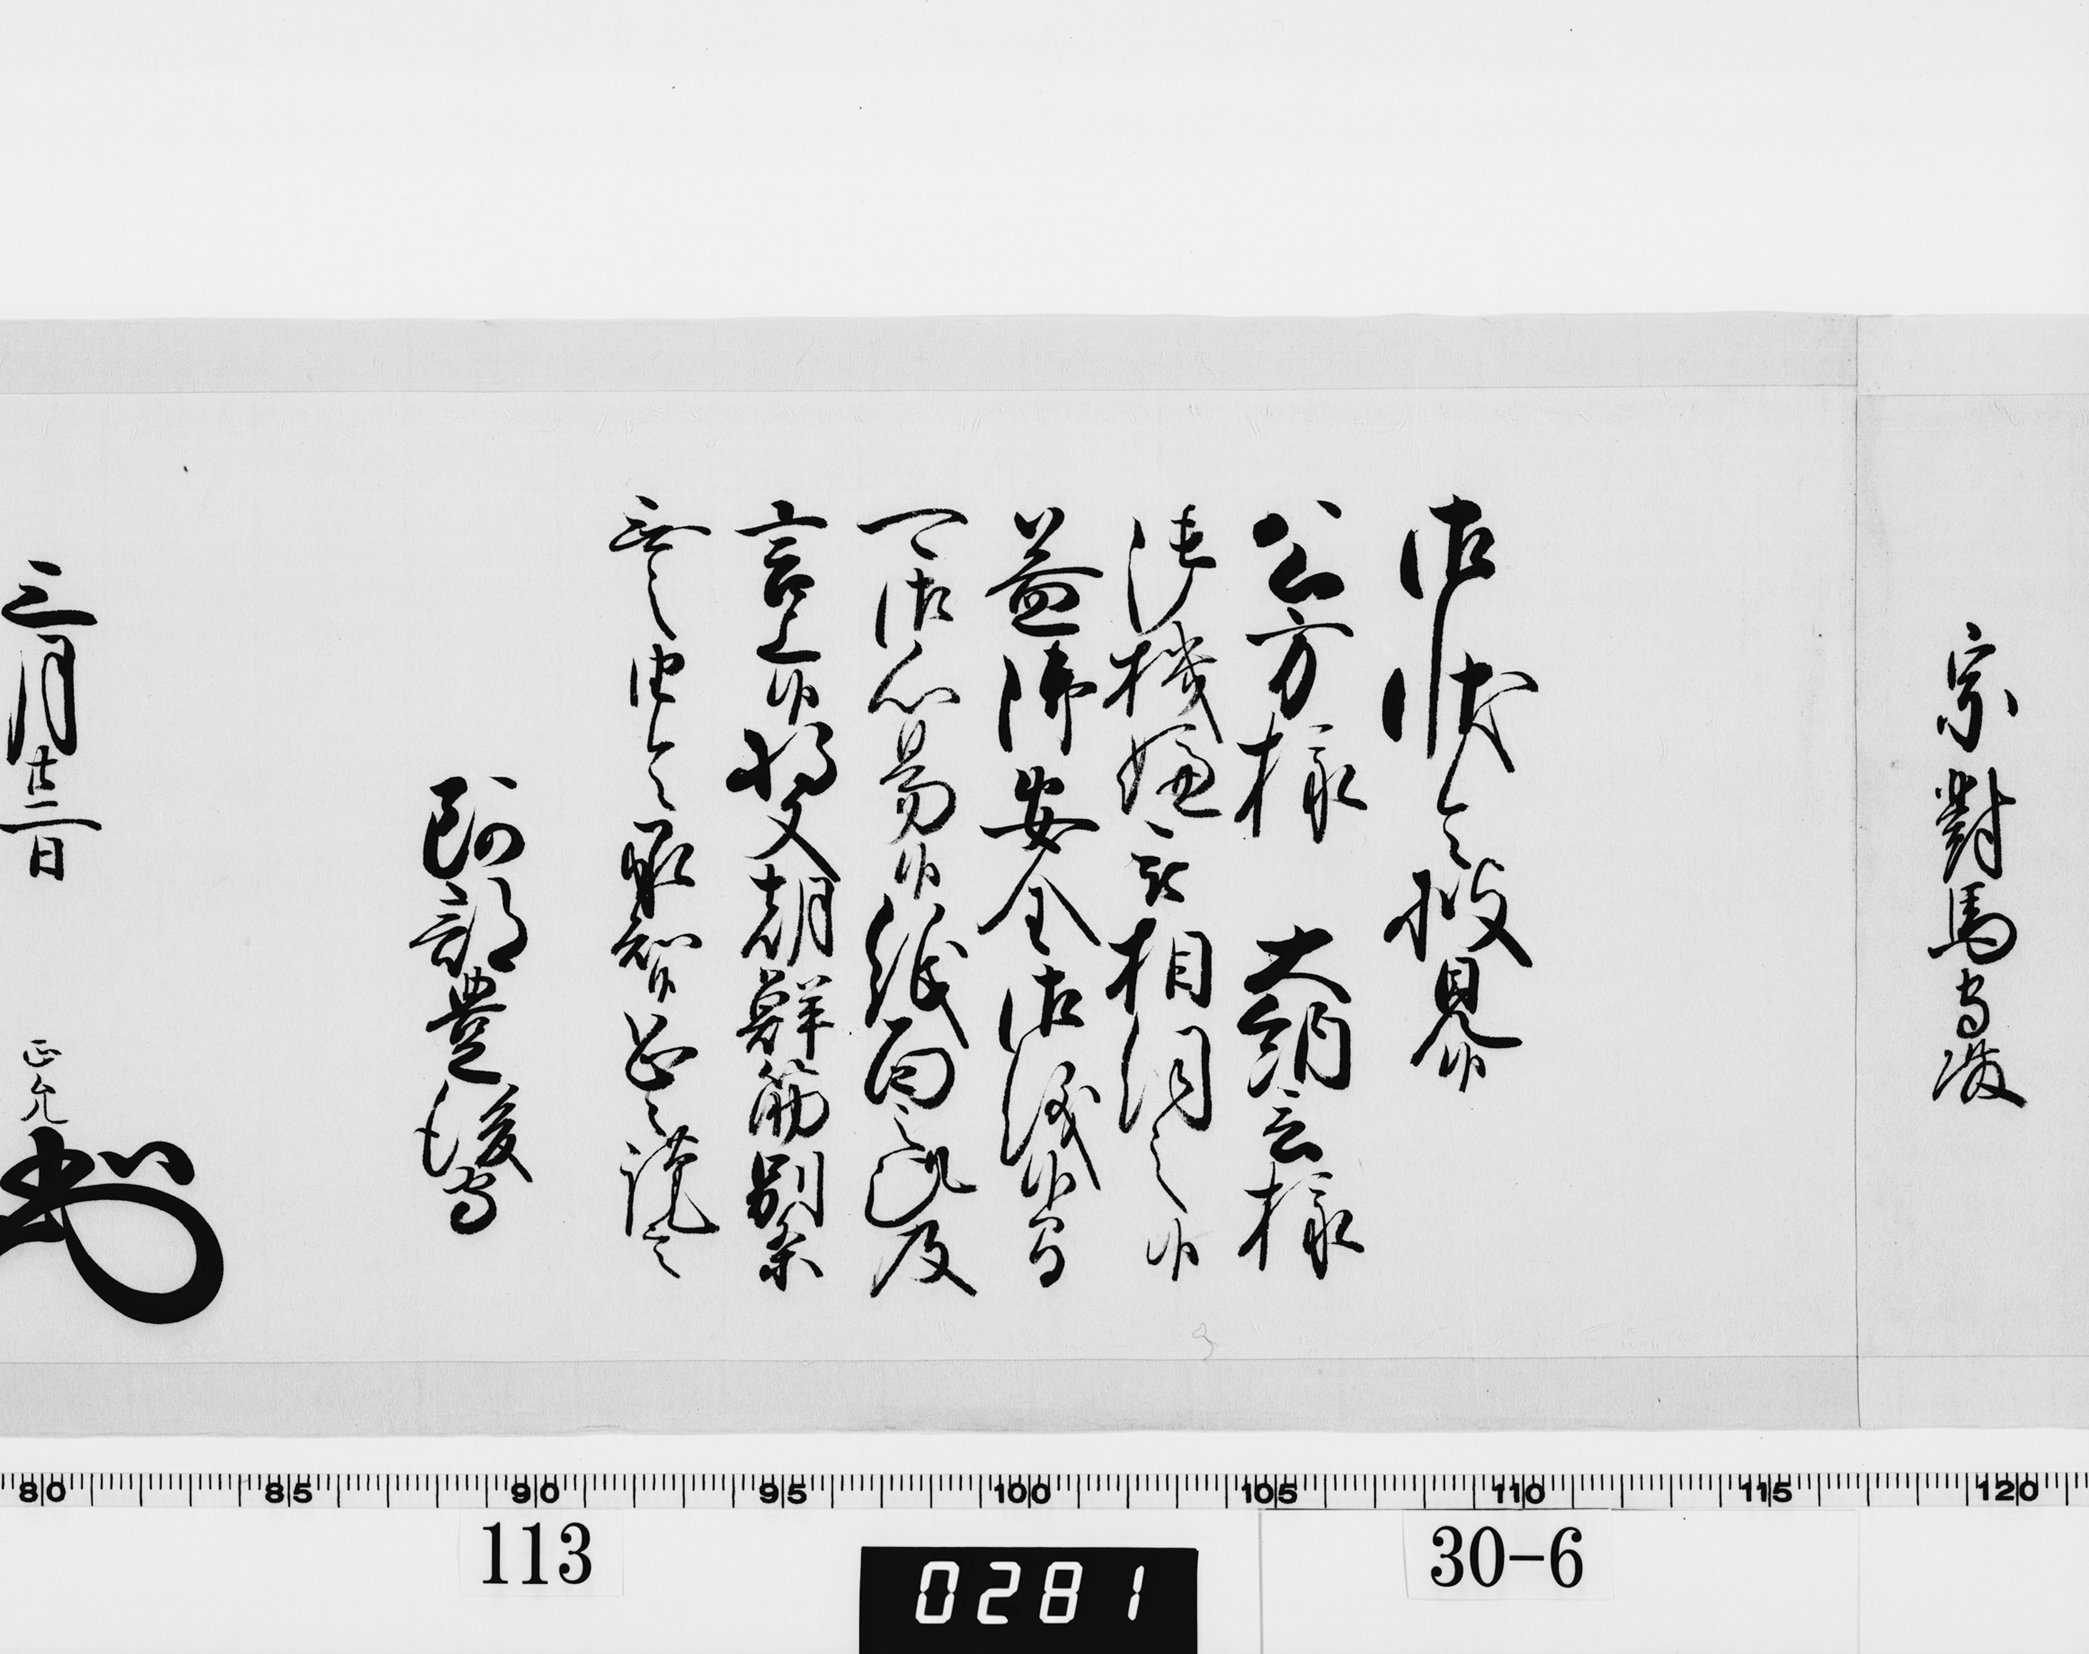 宗對馬守殿
御状令披見候
公方様 大納言様
御機嫌被相伺之候
益御安全御儀候間
可御心易候紙面之趣及
言上候将又朝鮮筋別条
無之由令承知候恐々謹言
阿部豊後守
三月廿二日
正允
80 85 90 95 100 105 110 115 120
113
0281
30-6